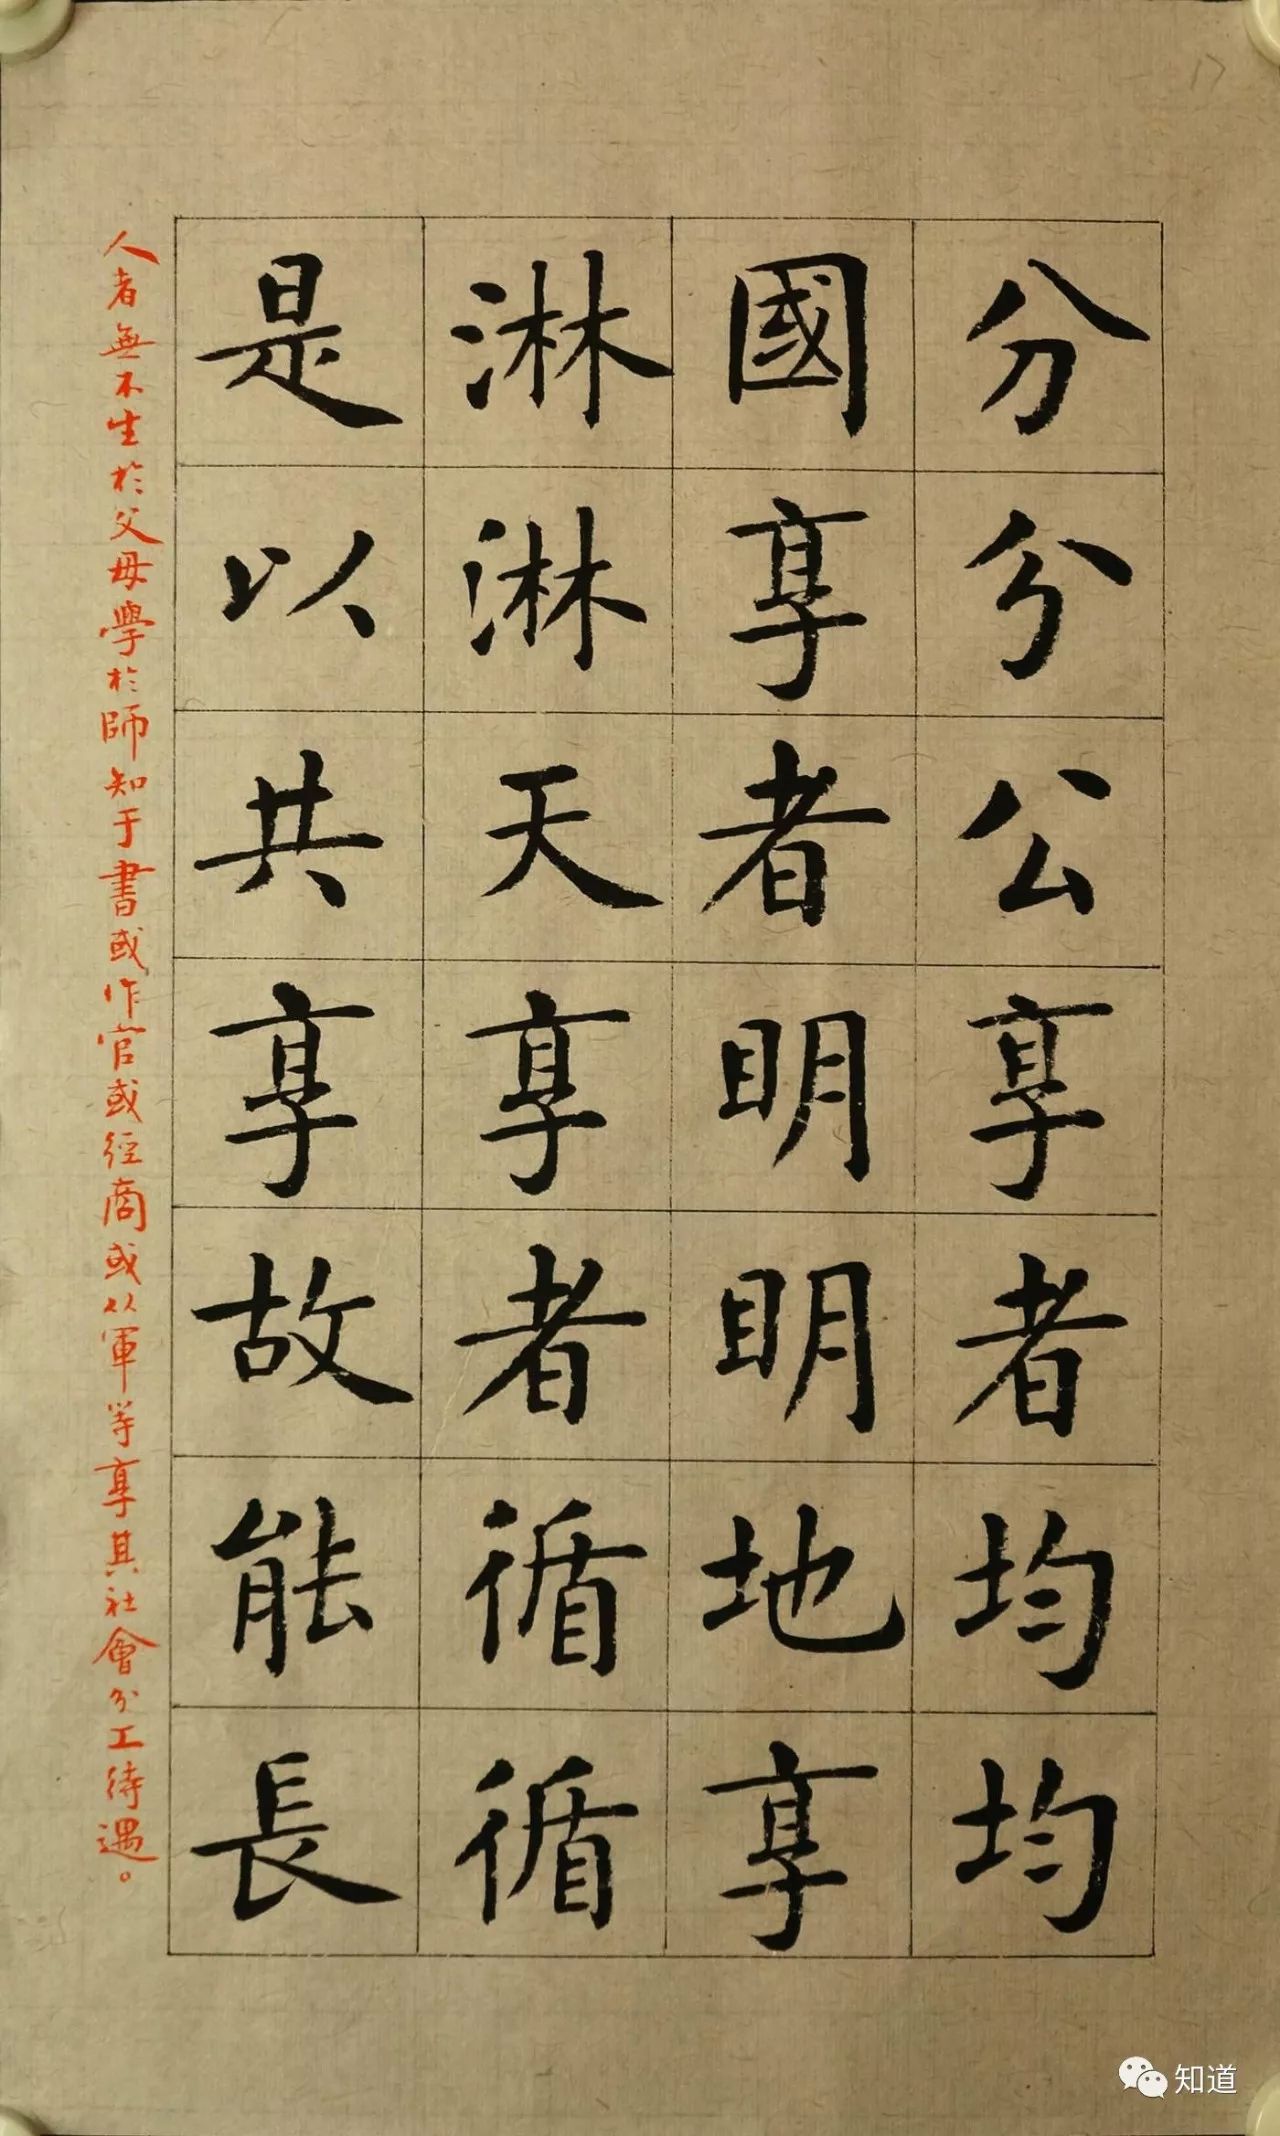 分分公享者均均
國享者明明地享
淋淋天享者循循
是以共享故能長
人者無不生於父母學於師知于書或作官或經商或从軍等享其社會分工待遇。
17
知道